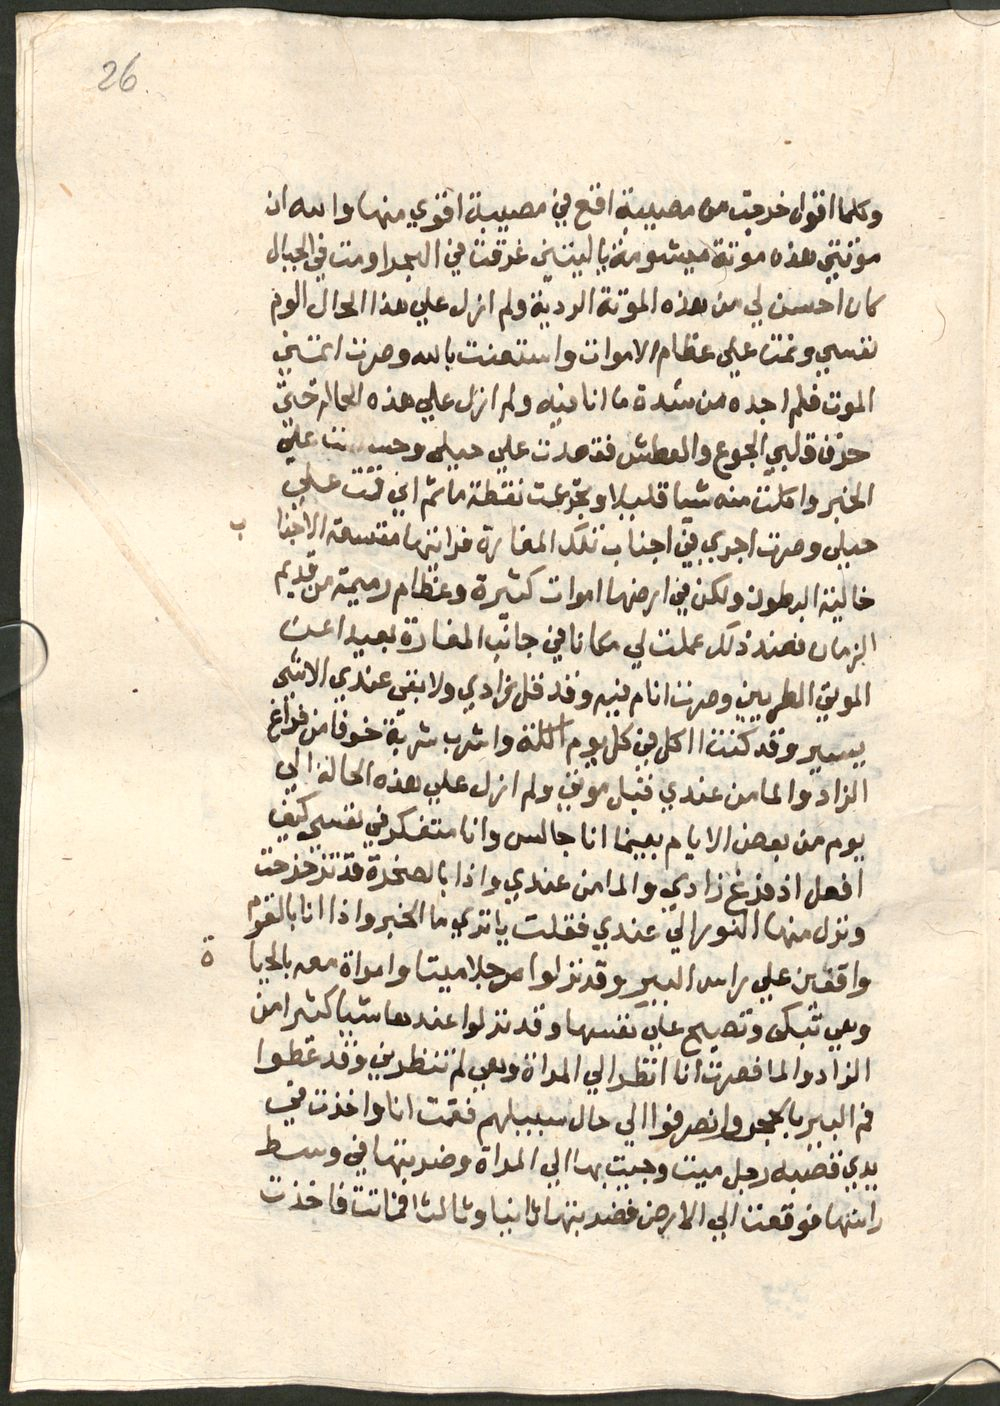 26
وكلما اقول خرجت من مصيبة اقع في مصيبة اقوي منها والله ان
موتتي هذه موتة ميشومة ياليتني غرقت في البحر او مت في الجبال
كان احسن لي من هذه الموتة الردية ولم ازل علي هذا الحال الوم
نفسي ونمت علي عظام الاموات واستعنت بالله وصرت اتمني
الموت فلم اجده من شدة ما انا فيه ولم ازل علي هذه الحالة حتي
حرق قلبي الجوع والعطش فقعدت علي حيلي وحسست علي
الخبز واكلت منه شيا قليلا وتجرعت نقطة ما ثم اني قمت علي
حيلي وصرت اجري في اجناب تلك المغارة فرايتها متسعة الاجنا
ب
خالية البطون ولكن في ارضها اموات كثيرة وعظام رميمة من قديم
الزمان فعند ذلك عملت لي مكانا في جانب المغارة بعيدا عن
الموتي الطريين وصرت انام فيه وقد قل زادي ولا بقي عندي الا شي
يسير وقد كنت ااكل في كل يوم اكلة واشرب شربة خوفا من فراغ
الزاد والما من عندي قبل موتي ولم ازل علي هذه الحالة الي
يوم من بعض الايام بينما انا جالس وانا متفكر في نفسي كيف
افعل اذ فرغ زادي والما من عندي واذا بالصخرة قد تزحزحت
ونزل منها النور الي عندي فقلت ياتري ما الخبر واذا انا بالقوم
واقفين علي راس البير وقد نزلوا رجلا ميتا وامراة معه بالحيا
ة
وهي تبكي وتصيح علي نفسها وقد نزلوا عندها شيا كثيرا من
الزاد والما فصرت انا انظر الي المراة وهي لم تنظرني وقد غطوا
فم البير بالحجر وانصرفوا الي حال سبيلهم فقمت انا واخذت في
يدي قصبه رجل ميت وجيت بها الي المراة وضربتها في وسط
راسها فوقعت الي الارض فضربتها ثانيا وثالثا فماتت فاخذت